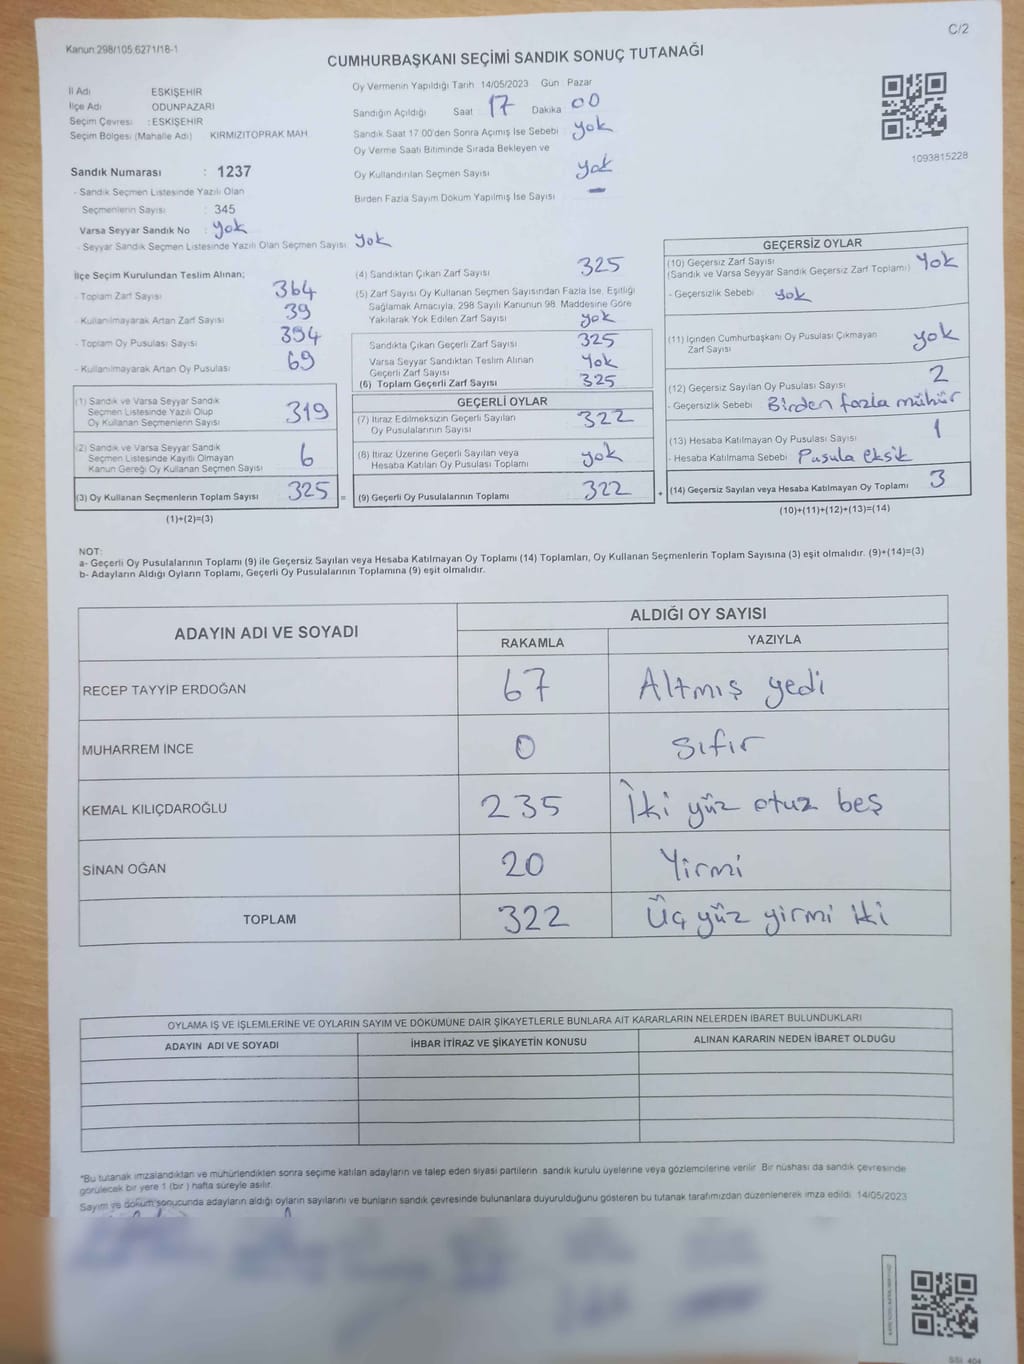 C/2
Kanun 298/105,6271/18-1
CUMHURBAŞKANI SEÇİMİ SANDIK SONUÇ TUTANAĞI
İl Adı ESKİŞEHİR
İlçe Adı ODUNPAZARI
Seçim Çevresi : ESKİŞEHİR
Seçim Bölgesi (Mahalle Adı) KIRMIZITOPRAK MAH
Sandık Numarası : 1237
- Sandık Seçmen Listesinde Yazılı Olan
Seçmenlerin Sayısı : 345
Varsa Seyyar Sandık No : yok
- Seyyar Sandık Seçmen Listesinde Yazılı Olan Seçmen Sayısı yok
Oy Vermenin Yapıldığı Tarih 14/05/2023 Gün : Pazar
Sandığın Açıldığı Saat 17 Dakika 00
Sandık Saat 17:00'den Sonra Açılmış İse Sebebi yok
Oy Verme Saati Bitiminde Sırada Bekleyen ve
Oy Kullandırılan Seçmen Sayısı yok
Birden Fazla Sayım Döküm Yapılmış İse Sayısı -
1093815228
İlçe Seçim Kurulundan Teslim Alınan;
- Toplam Zarf Sayısı 364
- Kullanılmayarak Artan Zarf Sayısı 39
- Toplam Oy Pusulası Sayısı 394
- Kullanılmayarak Artan Oy Pusulası 69
(1) Sandık ve Varsa Seyyar Sandık
Seçmen Listesinde Yazılı Olup
Oy Kullanan Seçmenlerin Sayısı 319
(2) Sandık ve Varsa Seyyar Sandık
Seçmen Listesinde Kayıtlı Olmayan
Kanun Gereği Oy Kullanan Seçmen Sayısı 6
(3) Oy Kullanan Seçmenlerin Toplam Sayısı 325 =
(1)+(2)=(3)
(4) Sandıktan Çıkan Zarf Sayısı 325
(5) Zarf Sayısı Oy Kullanan Seçmen Sayısından Fazla İse, Eşitliği
Sağlamak Amacıyla, 298 Sayılı Kanunun 98. Maddesine Göre
Yakılarak Yok Edilen Zarf Sayısı yok
Sandıkta Çıkan Geçerli Zarf Sayısı 325
Varsa Seyyar Sandıktan Teslim Alınan
Geçerli Zarf Sayısı Yok
(6) Toplam Geçerli Zarf Sayısı 325
GEÇERLİ OYLAR
(7) İtiraz Edilmeksizin Geçerli Sayılan
Oy Pusulalarının Sayısı 322
(8) İtiraz Üzerine Geçerli Sayılan veya
Hesaba Katılan Oy Pusulası Toplamı yok
(9) Geçerli Oy Pusulalarının Toplamı 322 +
GEÇERSİZ OYLAR
(10) Geçersiz Zarf Sayısı
(Sandık ve Varsa Seyyar Sandık Geçersiz Zarf Toplamı) Yok
- Geçersizlik Sebebi yok
(11) İçinden Cumhurbaşkanı Oy Pusulası Çıkmayan
Zarf Sayısı yok
(12) Geçersiz Sayılan Oy Pusulası Sayısı 2
- Geçersizlik Sebebi Birden fazla mühür
(13) Hesaba Katılmayan Oy Pusulası Sayısı 1
- Hesaba Katılmama Sebebi Pusula eksik
(14) Geçersiz Sayılan veya Hesaba Katılmayan Oy Toplamı 3
(10)+(11)+(12)+(13)=(14)
NOT:
a- Geçerli Oy Pusulalarının Toplamı (9) ile Geçersiz Sayılan veya Hesaba Katılmayan Oy Toplamı (14) Toplamları, Oy Kullanan Seçmenlerin Toplam Sayısına (3) eşit olmalıdır. (9)+(14)=(3)
b- Adayların Aldığı Oyların Toplamı, Geçerli Oy Pusulalarının Toplamına (9) eşit olmalıdır.
ADAYIN ADI VE SOYADI ALDIĞI OY SAYISI
RAKAMLA YAZIYLA
RECEP TAYYİP ERDOĞAN 67 Altmış yedi
MUHARREM İNCE 0 Sıfır
KEMAL KILIÇDAROĞLU 235 İki yüz otuz beş
SİNAN OĞAN 20 Yirmi
TOPLAM 322 Üç yüz yirmi iki
OYLAMA İŞ VE İŞLEMLERİNE VE OYLARIN SAYIM VE DÖKÜMÜNE DAİR ŞİKAYETLERLE BUNLARA AİT KARARLARIN NELERDEN İBARET BULUNDUKLARI
ADAYIN ADI VE SOYADI İHBAR İTİRAZ VE ŞİKAYETİN KONUSU ALINAN KARARIN NEDEN İBARET OLDUĞU
*Bu tutanak imzalandıktan ve mühürlendikten sonra seçime katılan adayların ve talep eden siyasi partilerin sandık kurulu üyelerine veya gözlemcilerine verilir. Bir nüshası da sandık çevresinde
görülecek bir yere 1 (bir) hafta süreyle asılır.
Sayım ve döküm sonucunda adayların aldığı oyların sayılarını ve bunların sandık çevresinde bulunanlara duyurulduğunu gösteren bu tutanak tarafımızdan düzenlenerek imza edildi. 14/05/2023